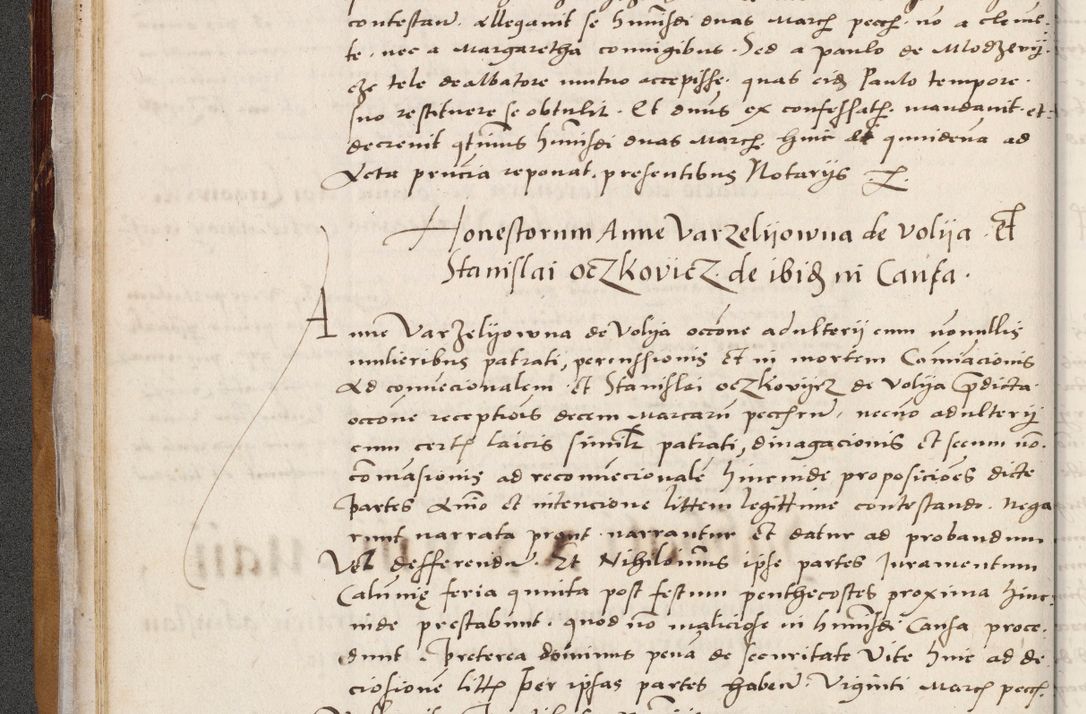 contestan̄. Allegavit se hm̄õi duas March pecch. nō a Clemen⸗
te. nec a Margaretha coniugibus. Sed a Paulo de Modzewij.
cze tele dealbatore mutuo accepisse. quas eid Paulo tempore.
suo restituere se obtulit. Et dnūs ex confessatis. mandavit. et.
decrevit qtinus hm̄õi duas March hinc ad quindena ad
Acta pn̄cia reponat. presentibus Notarijs
Honestorum Anne Varzelijowna de Volija. Et
Stanislai oczkovicz. de ibid in Causa.
Anne Varzelijowna de Volija occōne adulterij cum nonullis
mulieribus patrati, percussionis Et in mortem Comīacionis
Ad convecionalem. Et Stanislai oczkovijcz de Volija p̄dicta.
occōne receptiōis decem Marcarū pecchrū, necnō adulterij
cum certis laicis similr patrati, divagacionis Et secum nō.
comāsionis ad reconvecionalē hincinde proposiciōes dicte
partes Anīo et intencione littem legittime contestando. nega
runt narrata prout narrantur Et datur ad probandum
Vel defferendū. Et Nihilomīus ipse partes Juramentum
Calumnię feria quinta post festum penthecostes proxima hinc⸗
inde prestabunt. quod nō maliciose in hm̄õi Causa proce.
dunt. Preterea dominus pena de securitate Vite hinc ad de
cisionē littis per ipsas partes habenn̄. Viginti March pecch.